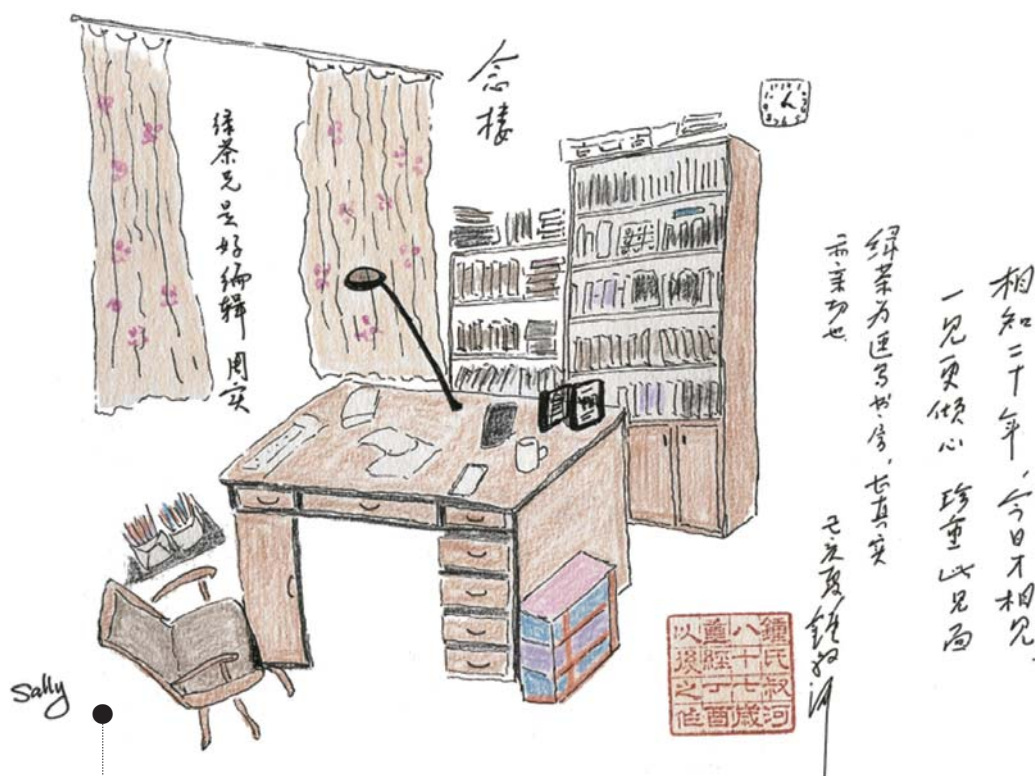 念楼
绿茶兄是好编辑 周实
相知二十年，今日才相见，
一见更倾心 珍重此见面
绿茶为速写书房，甚真实
亲切也
己亥夏 鍾叔河
鍾氏叔河
八十七歲
經丁酉
以後之作
Sally